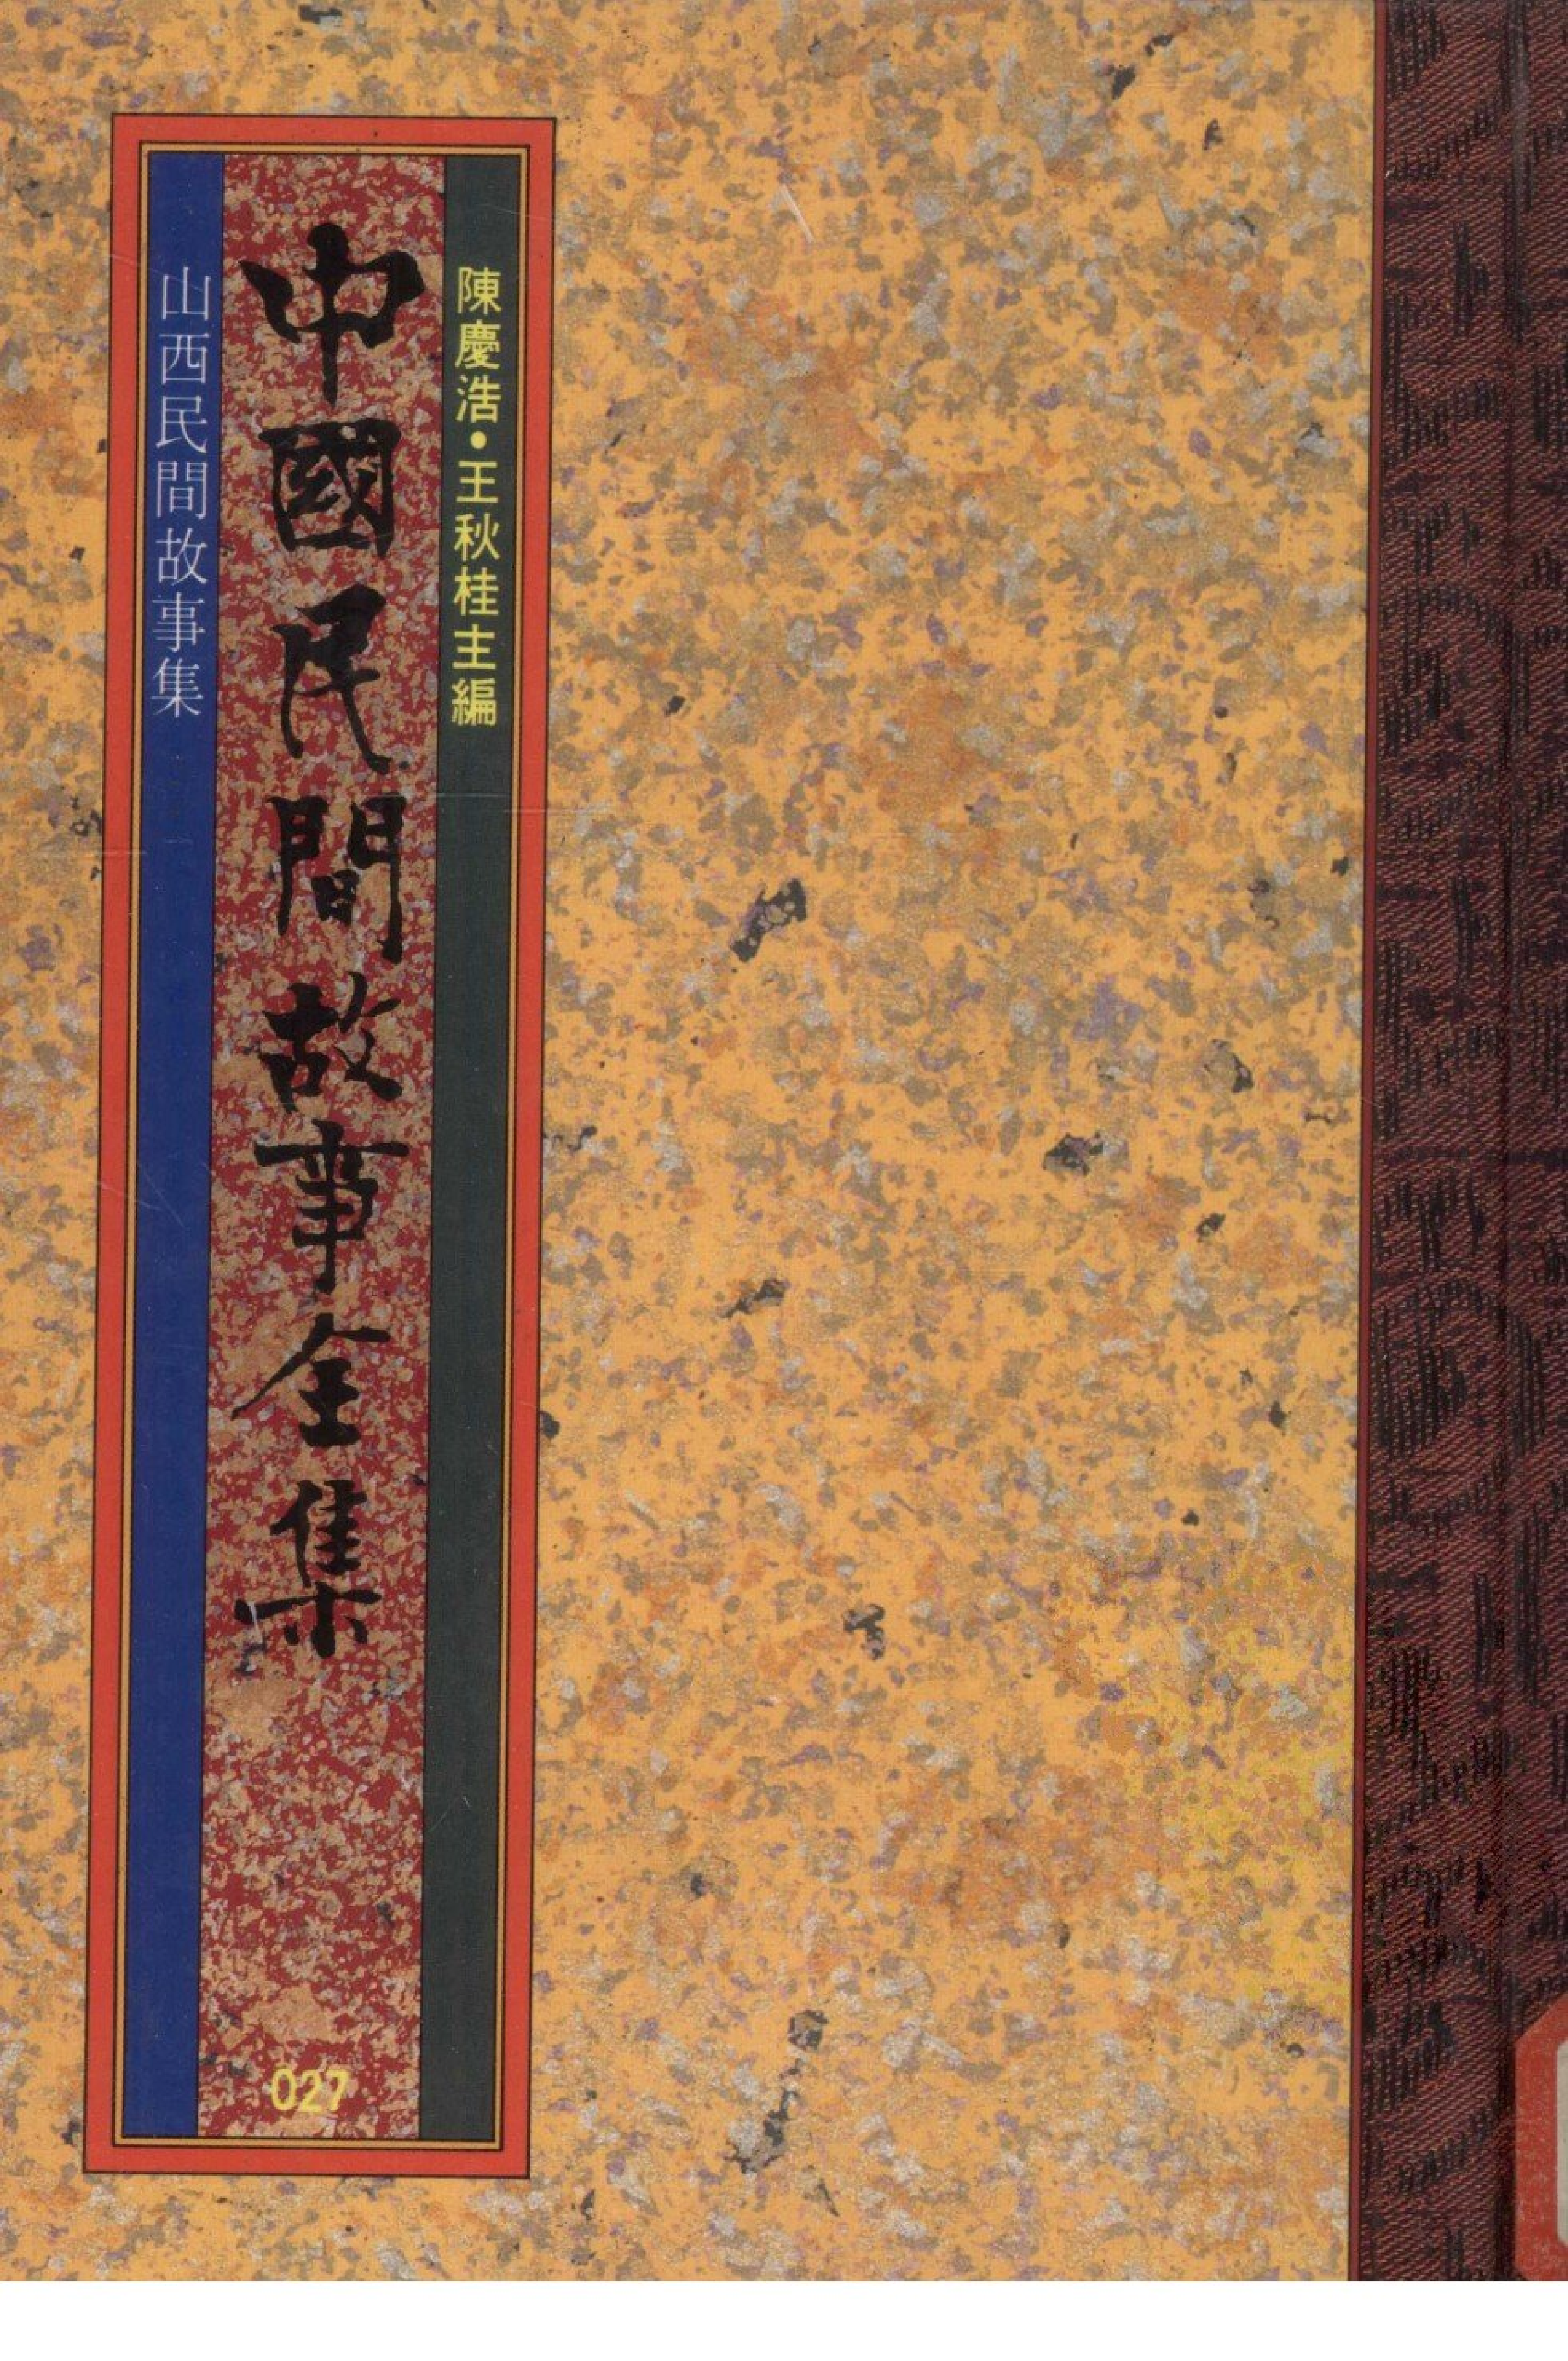 陳慶浩•王秋桂主編
中國民間故事全集
027
山西民間故事集